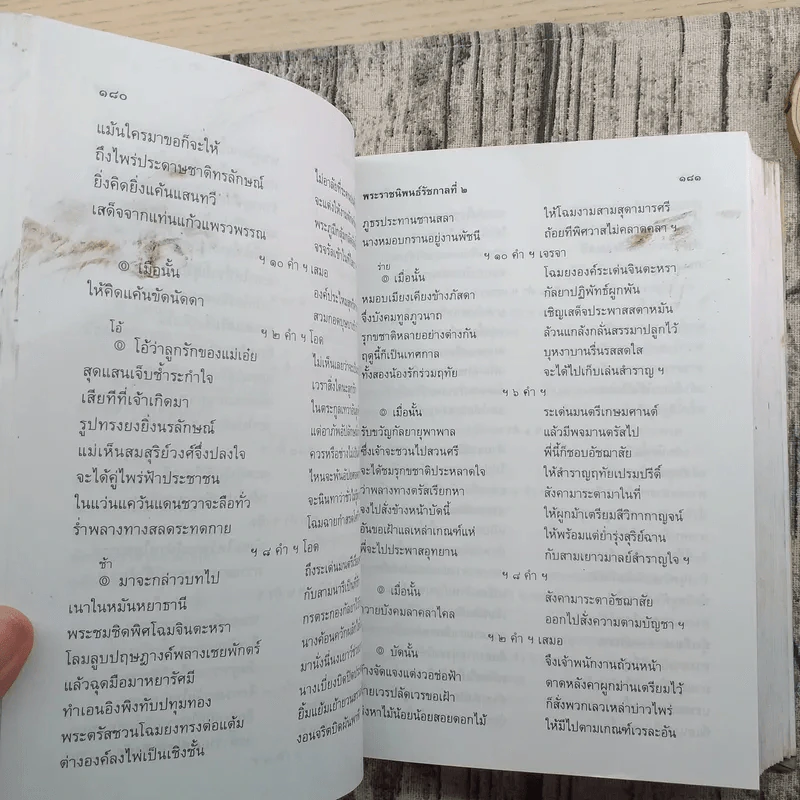 ๑๘๐
แม้นใครมาขอก็จะให้
ถึงไพร่ประดาษชาติทรลักษณ์ ไม่อาลัยที่ระ
ยิ่งคิดยิ่งแค้นแสนทวี จะแต่งให้งาม
เสด็จจากแท่นแก้วแพรวพรรณ
จรจรัลเข้าใน
ฯ ๑๐ คำ ฯ เสมอ
๏ เมื่อนั้น องค์ประไหม
ให้คิดแค้นขัดนัดดา สวมกอดบุษบา
ฯ ๒ คำ ฯ โอด
โอ้
๏ โอ้ว่าลูกรักของแม่เอ๋ย ไม่เห็นเลยว่าจะ
สุดแสนเจ็บช้ำระกำใจ เวราสิ่งใด
เสียทีที่เจ้าเกิดมา ในตระกูลเทวา
รูปทรงยงยิ่งนรลักษณ์ แต่อาภัพอัปลักษณ์
แม่เห็นสมสุริย์วงศ์จึ่งปลงใจ ควรหรือช่างไม่
จะได้คู่ไพร่ฟ้าประชาชน ไหนจะพ้น
ในแว่นแคว้นแดนชวาจะลือทั่ว จะนินทาว่าชั่ว
ร่ำพลางทางสลดระทดกาย โฉมฉาย
ฯ ๘ คำ ฯ โอด
ช้า
๏ มาจะกล่าวบทไป ถึงระเด่นมนตรี
เนาในหมันหยาธานี กับสามนารี
พระชมชิดพิศโฉมจินตะหรา กรตระกองกัลยา
โลมลูบปฤษฎางค์พลางเชยพักตร์ นางค้อนควัก
แล้วฉุดมือมาหยารัศมี มานั่งนี่
ทำเอนอิงพิงทับปทุมทอง นางเบี่ยง
พระตรัสชวนโฉมยงทรงต่อแต้ม ยิ้มแย้ม
ต่างองค์ลงไพ่เป็นเชิงชั้น งอนจริต
พระราชนิพนธ์รัชกาลที่ ๒ ๑๘๑
ภูธรประทานชานสลา ให้โฉมงามสามสุดามารศรี
นางหมอบกรานอยู่งานพัชนี ถ้อยทีพิศวาสไม่คลาดคลา ฯ
ฯ ๑๐ คำ ฯ เจรจา
ร่าย
๏ เมื่อนั้น โฉมยงองค์ระเด่นจินตะหรา
หมอบเมียงเคียงข้างภัสดา กัลยาปฏิพัทธ์ผูกพัน
จึ่งบังคมทูลภูวนาถ เชิญเสด็จประพาสสตาหมัน
รุกขชาติหลายอย่างต่างกัน ล้วนแกล้งกลั่นสรรมาปลูกไว้
ฤดูนี้ก็เป็นเทศกาล บุหงาบานรื่นรสสดใส
ทั้งสองน้องรักร่วมฤทัย จะได้ไปเก็บเล่นสำราญ ฯ
ฯ ๖ คำ ฯ
๏ เมื่อนั้น ระเด่นมนตรีเกษมศานต์
รับขวัญกัลยายุพาพาล แล้วมีพจมานตรัสไป
ซึ่งเจ้าจะชวนไปสวนศรี พี่นี้ก็ชอบอัชฌาสัย
จะได้ชมรุกขชาติประหลาดใจ ให้สำราญฤทัยเปรมปรีดิ์
ว่าพลางทางตรัสเรียกหา สังคามาระตามาในที่
จงไปสั่งข้างหน้าบัดนี้ ให้ผูกม้าเตรียมสีวิกากาญจน์
อันขอเฝ้าแลเหล่าเกณฑ์แห่ ให้พร้อมแต่ย่ำรุ่งสุริย์ฉาน
พี่จะไปประพาสอุทยาน กับสามเยาวมาลย์สำราญใจ ฯ
ฯ ๘ คำ ฯ
๏ เมื่อนั้น สังคามาระตาอัชฌาสัย
วายบังคมลาคลาไคล ออกไปสั่งความตามบัญชา ฯ
ฯ ๒ คำ ฯ เสมอ
๏ บัดนั้น จึงเจ้าพนักงานถ้วนหน้า
จัดแจงแต่งวอช่อฟ้า ดาดหลังคาผูกม่านเตรียมไว้
เวรปลัดเวรขอเฝ้า ก็สั่งพวกเลวเหล่าบ่าวไพร่
หาไม้น้อยน้อยสอยดอกไม้ ให้มีไปตามเกณฑ์เวรละอัน